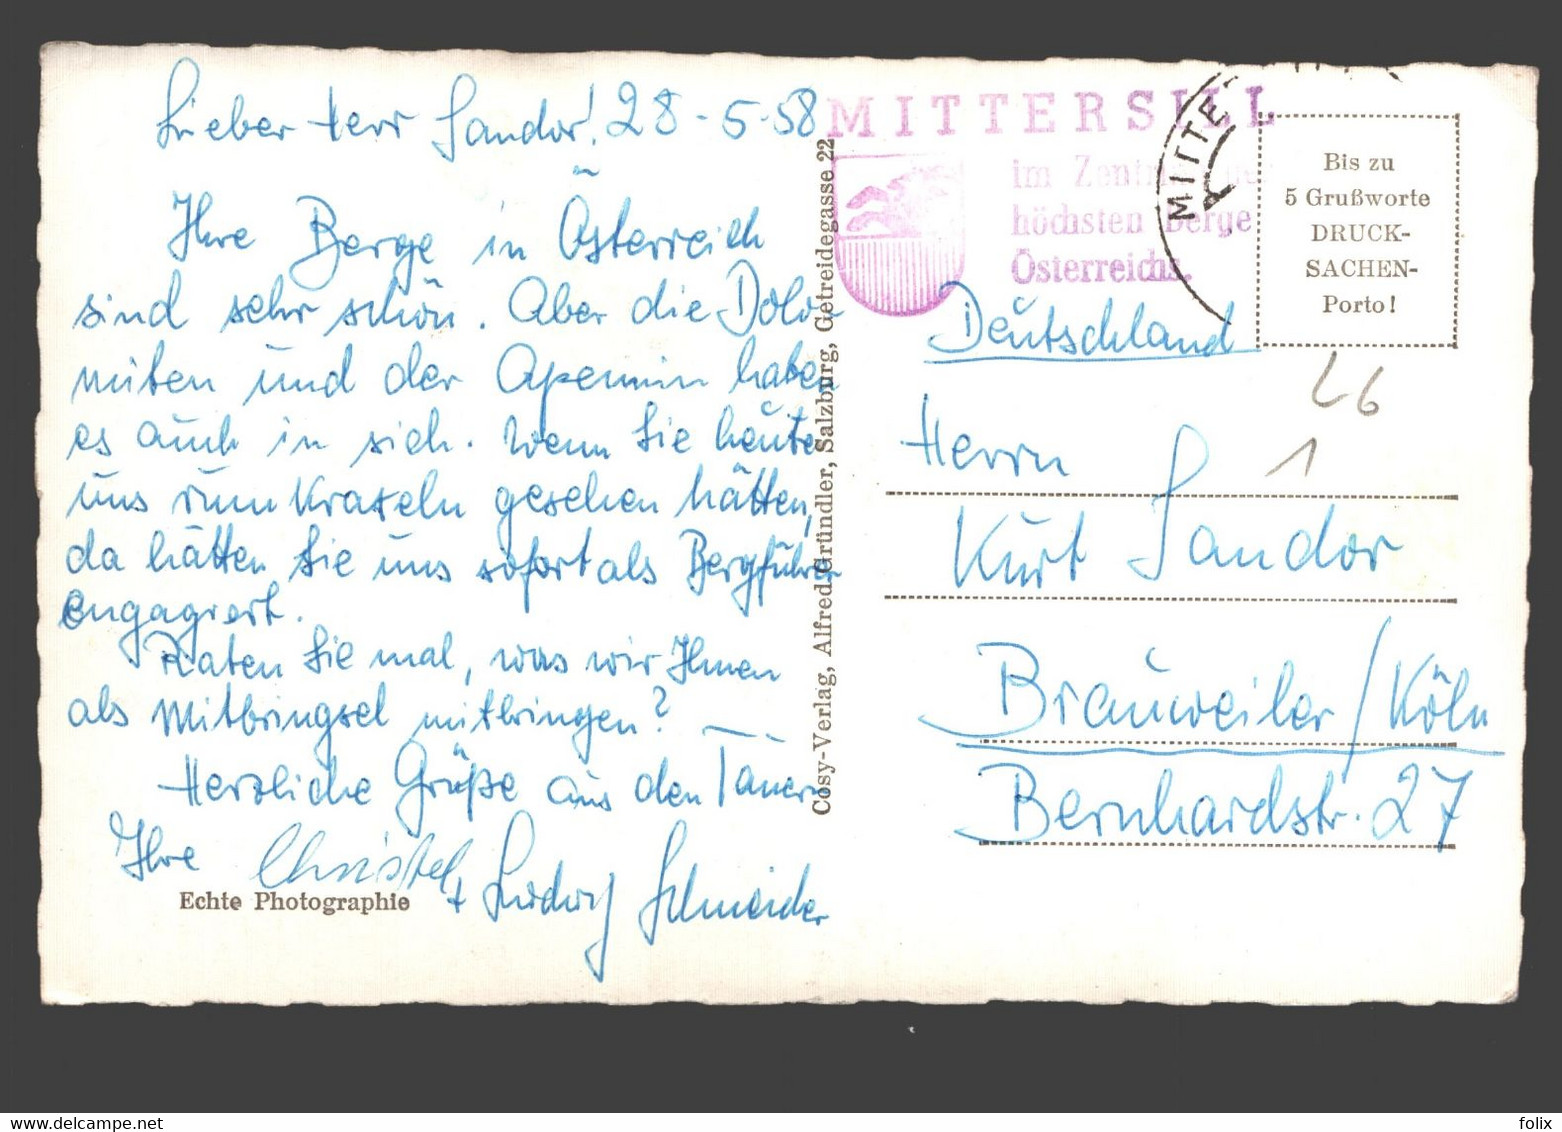 Lieber Herr Sandor! 28-5-58
Ihre Berge in Österreich
sind sehr schön. Aber die Dolo-
miten und der Apennin haben
es auch in sich. Wenn Sie heute
uns rumkraxeln gesehen hätten,
da hätten Sie uns sofort als Bergführer
engagiert.
Raten Sie mal, was wir Ihnen
als Mitbringsel mitbringen? —
Herzliche Grüße aus den Tauern
Ihre Christel
+ Ludwig Schneider
Echte Photographie
Cosy-Verlag, Alfred Gründler, Salzburg, Getreidegasse 22
MITTERSILL
im
höchsten Berge
Österreichs.
Bis zu
5 Grußworte
DRUCK-
SACHEN-
Porto!
Deutschland
26
1
Herrn
Kurt Sandor
Brauweiler/Köln
Bernhardstr. 27
folix